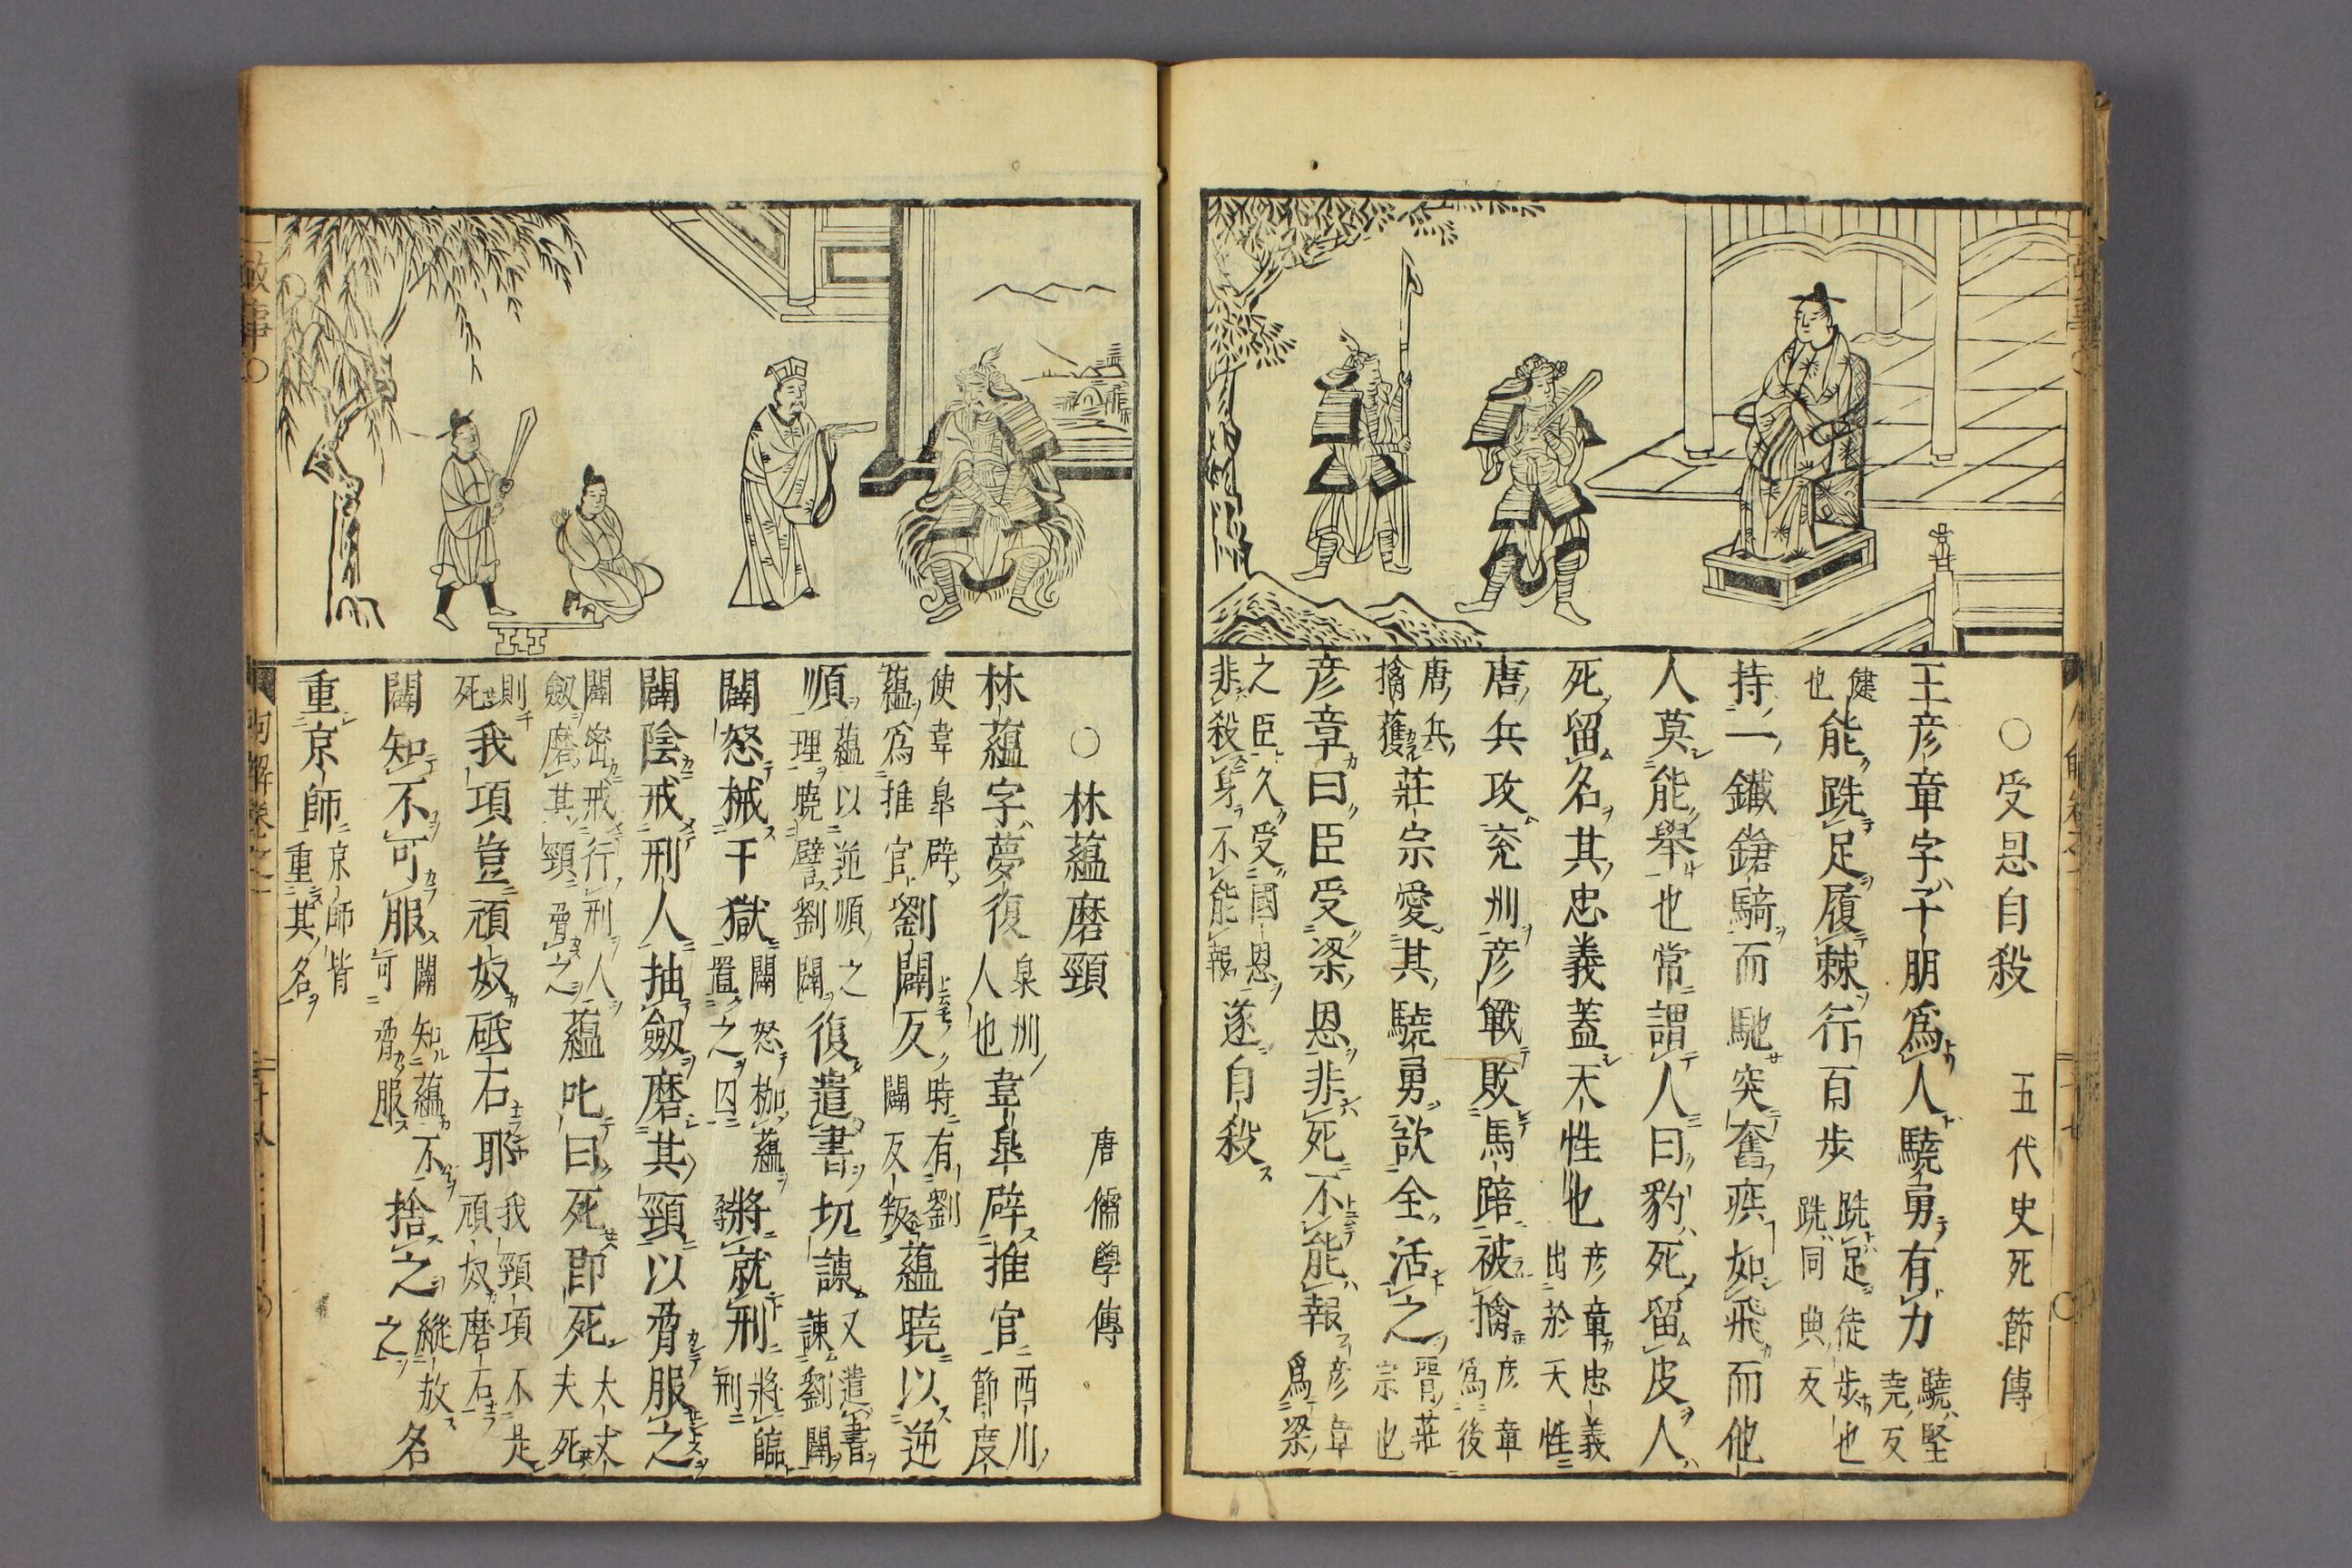 ○受恩自殺　五代史死節傳
王彦章字ハ子朋爲人驍勇有力驍堅堯反
健也能跣足履棘行百歩跣足徒歩也跣同典反
持一鐵鎗騎而馳突奮疾如飛而他
人莫能舉也常謂人曰豹死留皮人
死留名其忠義蓋天性也彦章忠義出於天性
唐兵攻兖州彦戰敗馬踣被擒彦章爲後
唐兵擒獲莊宗愛其驍勇欲全活之晋莊宗也
彦章曰臣受梁恩非死不能報彦章爲梁
之臣久受國恩非殺身不能報遂自殺
○林蘊磨頸　唐儒學傳
林蘊字夢復泉州人也韋皐辟推官西川節度
使韋皐辟蘊爲推官劉闢反時有劉闢反叛蘊曉以逆
順蘊以逆順之理曉譬劉闢復遣書切諫又遣書諫劉闢
闢怒械于獄闢怒枷蘊置之囚將就刑將臨刑
闢陰戒刑人抽劔磨其頸以脅服之
闢密戒行刑人劔磨其頸脅之蘊叱曰死即死大丈夫死
則死我項豈頑奴砥石耶我頸項不是頑奴磨石
闢知不可服闢知蘊不可脅服捨之縱放之名
重京師京師皆重其名